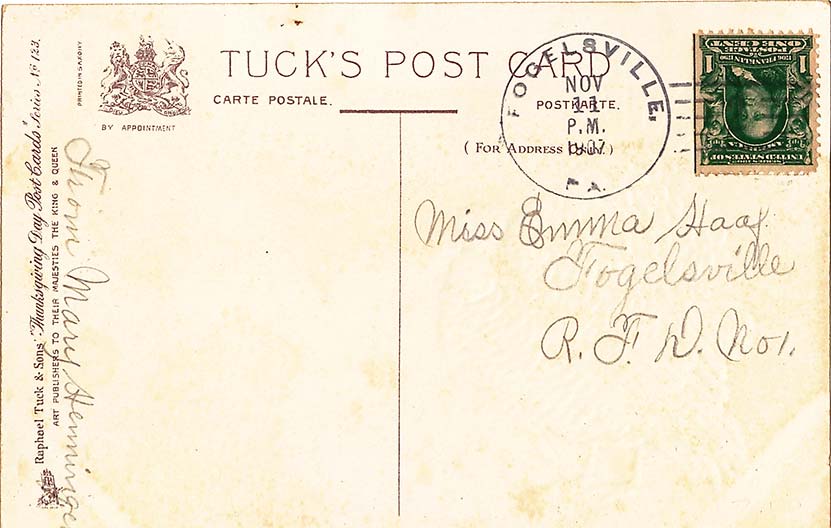 TUCK'S POST CARD
CARTE POSTALE.
POSTKARTE.
( FOR ADDRESS ONLY. )
BY APPOINTMENT
PRINTED IN SAXONY
Raphael Tuck & Sons' "Thanksgiving Day Post Cards" Series No 123.
ART PUBLISHERS TO THEIR MAJESTIES THE KING & QUEEN
From Mary
FOGELSVILLE,
NOV
11
P.M.
1907
PA.
UNITED STATES OF AMERICA
1 FRANKLIN 1
POSTAGE
ONE CENT
Miss Emma Haaf
Fogelsville
R. F. D. No 1.